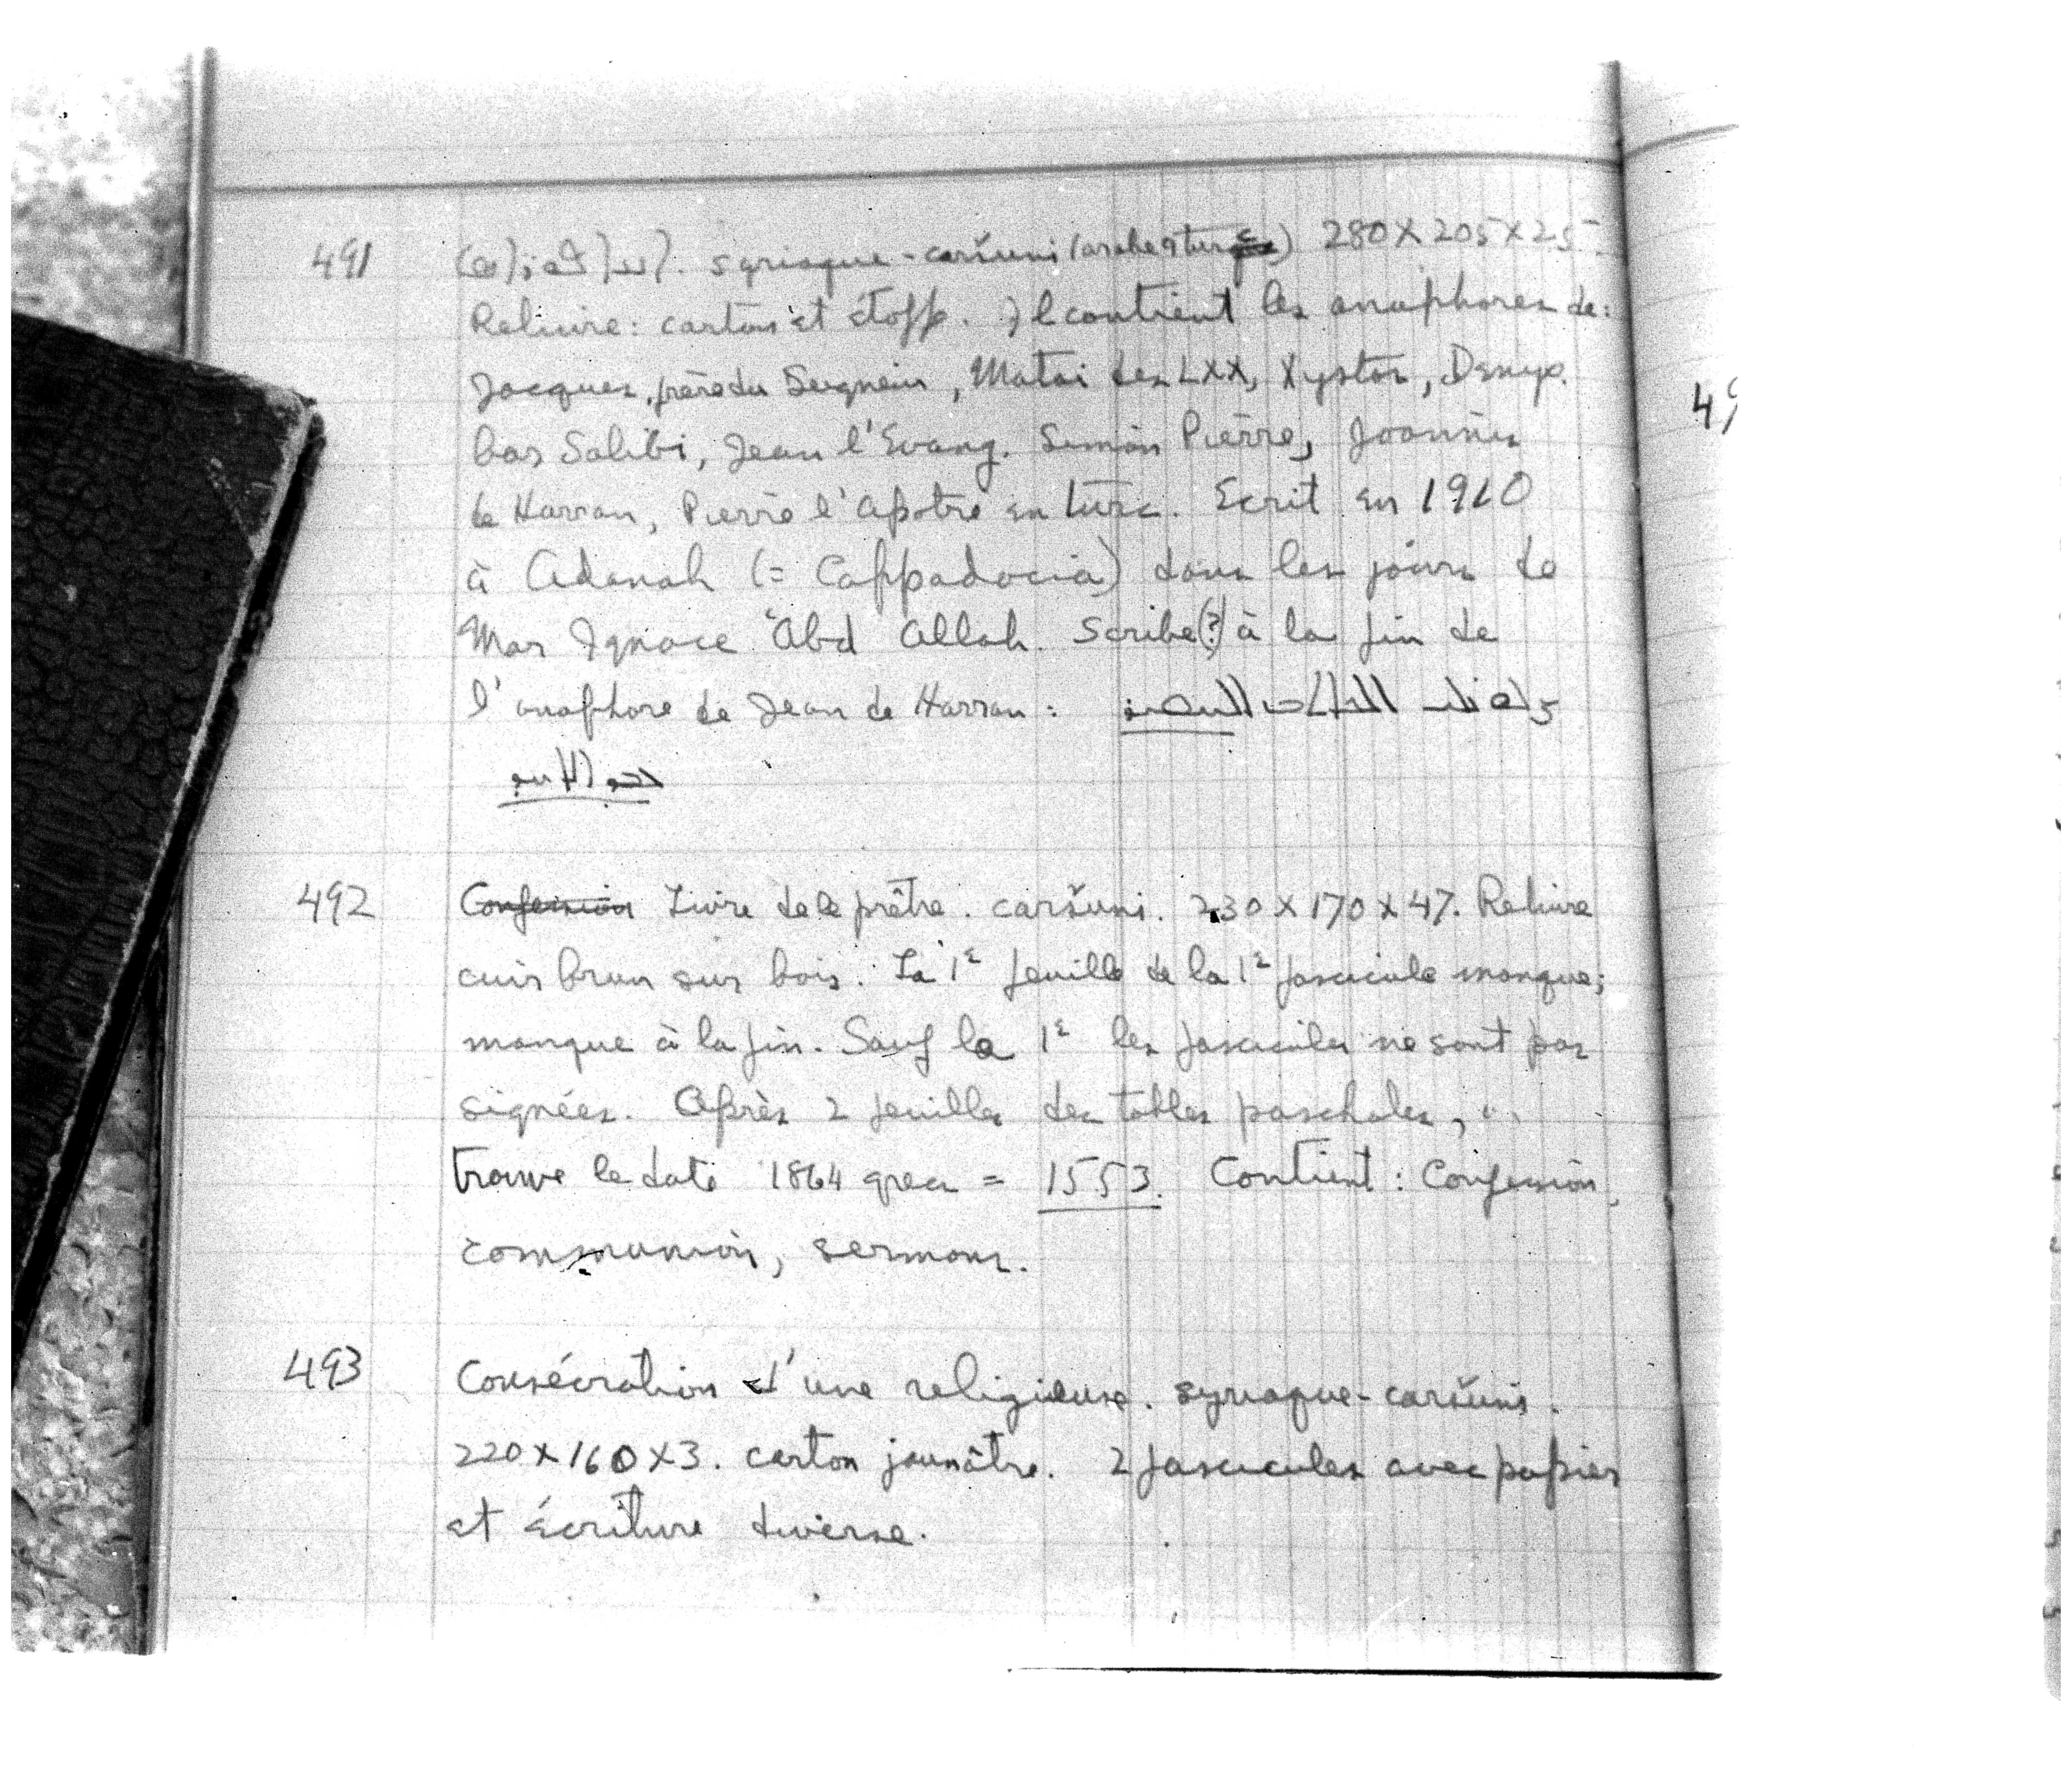 491 syriaque-caršuni (arabe et turc) 280 x 205 x 25
Reliure: carton et étoffe. Il contient les anaphores de:
Jacques, frère du Seigneur, Matai des LXX, Xystos, Denys.
bar Salibi, Jean l'Evang. Simon Pierre, Joannes
de Harran, Pierre l'Apotre en turc. Ecrit en 1910
à Adanah (= Cappadocia) dans les jours de
Mar Ignace 'Abd Allah. Scribe(?) à la fin de
l'anaphore de Jean de Harran:
492 Confession Livre de le prêtre. caršuni. 230 x 170 x 47. Reliure
cuir brun sur bois. La 1e feuille de la 1e fascicule manque;
manque à la fin. Sauf la 1e les fascicules ne sont pas
signées. Après 2 feuilles des tables paschales,
trouve le date 1864 grec = 1553. Contient: Confession,
communion, sermons.
493 Consécration d'une religieuse. syriaque-caršuni.
220 x 160 x 3. carton jaunâtre. 2 fascicules avec papier
et écriture diverse.